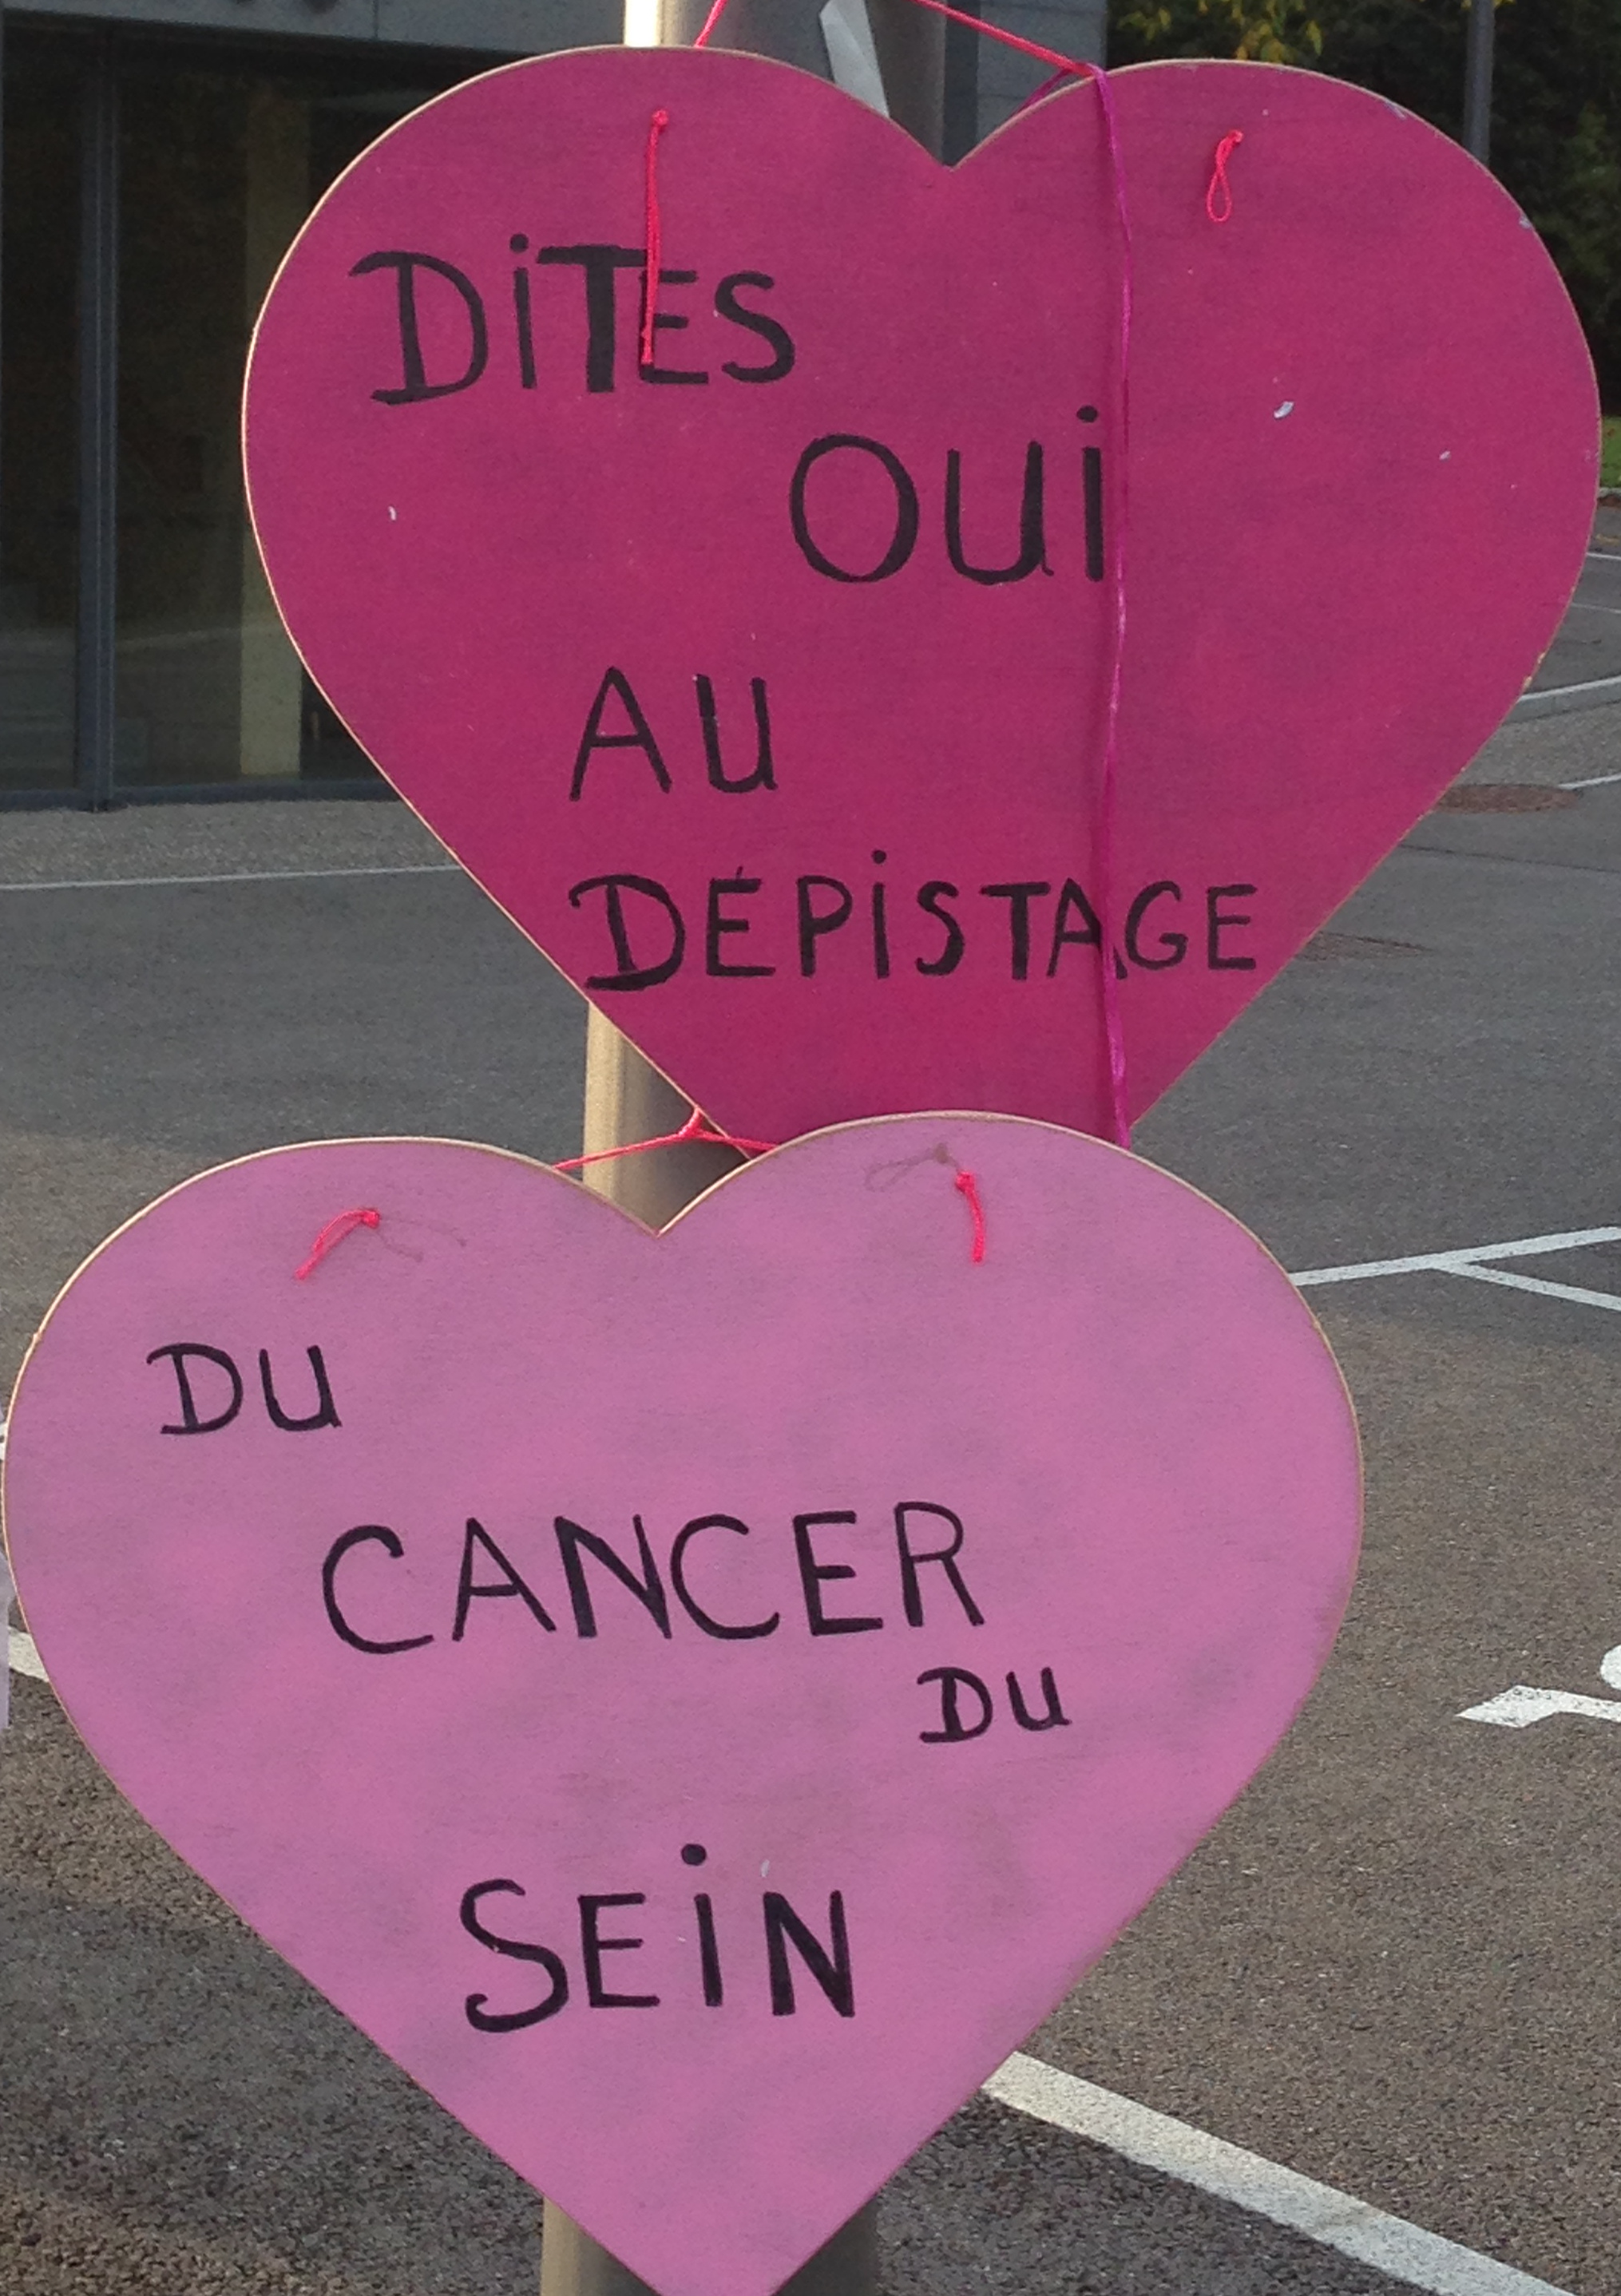 DiTES
OUi
AU
DÉPiSTAGE
DU
CANCER
DU
SEiN